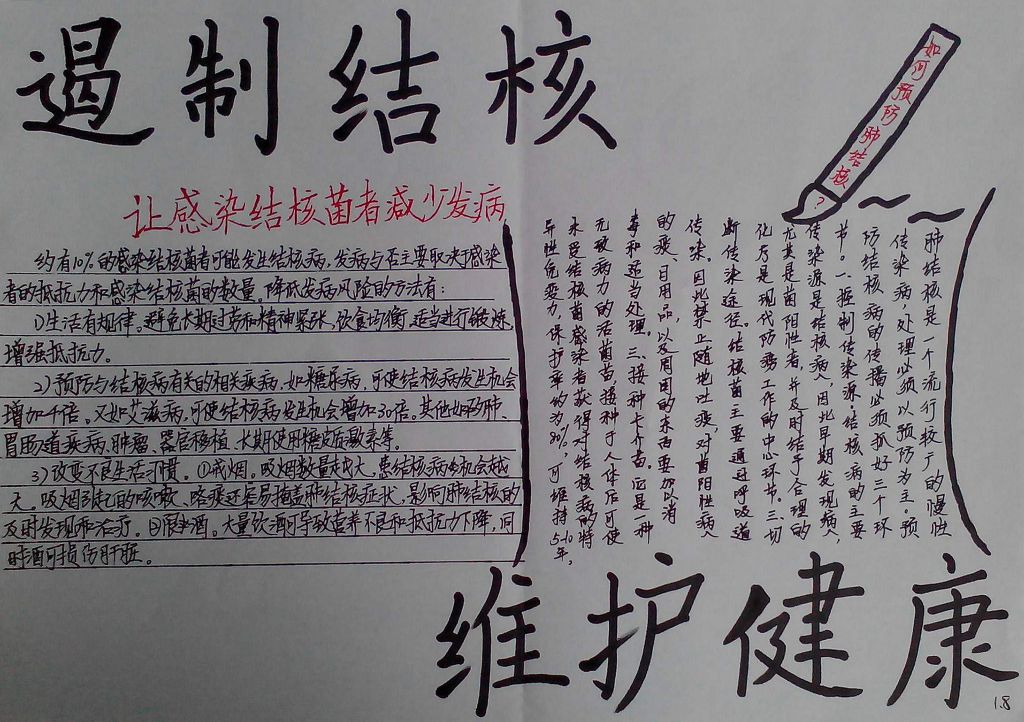 遏制结核
让感染结核菌者减少发病
约有10%的感染结核菌者可能发生结核病,发病与否主要取决于感染
者的抵抗力和感染结核菌的数量。降低发病风险的方法有:
1)生活有规律。避免长期过劳和精神紧张,饮食均衡,适当进行锻炼,
增强抵抗力。
2)预防与结核病有关的相关疾病,如糖尿病,可使结核病发生机会
增加4倍。又如艾滋病,可使结核病发生机会增加30倍。其他如矽肺、
胃肠道疾病、肿瘤、器官移植、长期使用糖皮质激素等。
3)改变不良生活习惯。①戒烟。吸烟数量越大,患结核病的机会越
大。吸烟引起的咳嗽、咯痰还容易掩盖肺结核症状,影响肺结核的
及时发现和治疗。②限制酒。大量饮酒可导致营养不良和抵抗力下降,同
时酒可损伤肝脏。
如何预防肺结核?
肺结核是一个流行较广的慢性
传染病,处理必须以预防为主。预
防结核病的传播必须抓好三个环
节。一、控制传染源:结核病的主要
传染源是结核病人,因此早期发现病人,
尤其是菌阳性者,并及时给予合理的
化疗是现代防痨工作的中心环节。二、切
断传染途径。结核菌主要通过呼吸道
传染。因此禁止随地吐痰,对菌阳性病人
的痰、日用品,以及周围的东西要加以消
毒和适当处理。三、接种卡介苗。它是一种
无致病力的活菌苗,接种于人体后可使
未受结核菌感染者获得对结核病的特
异性免疫力,保护率约为80%,可维持5-10年。
维护健康
1.8